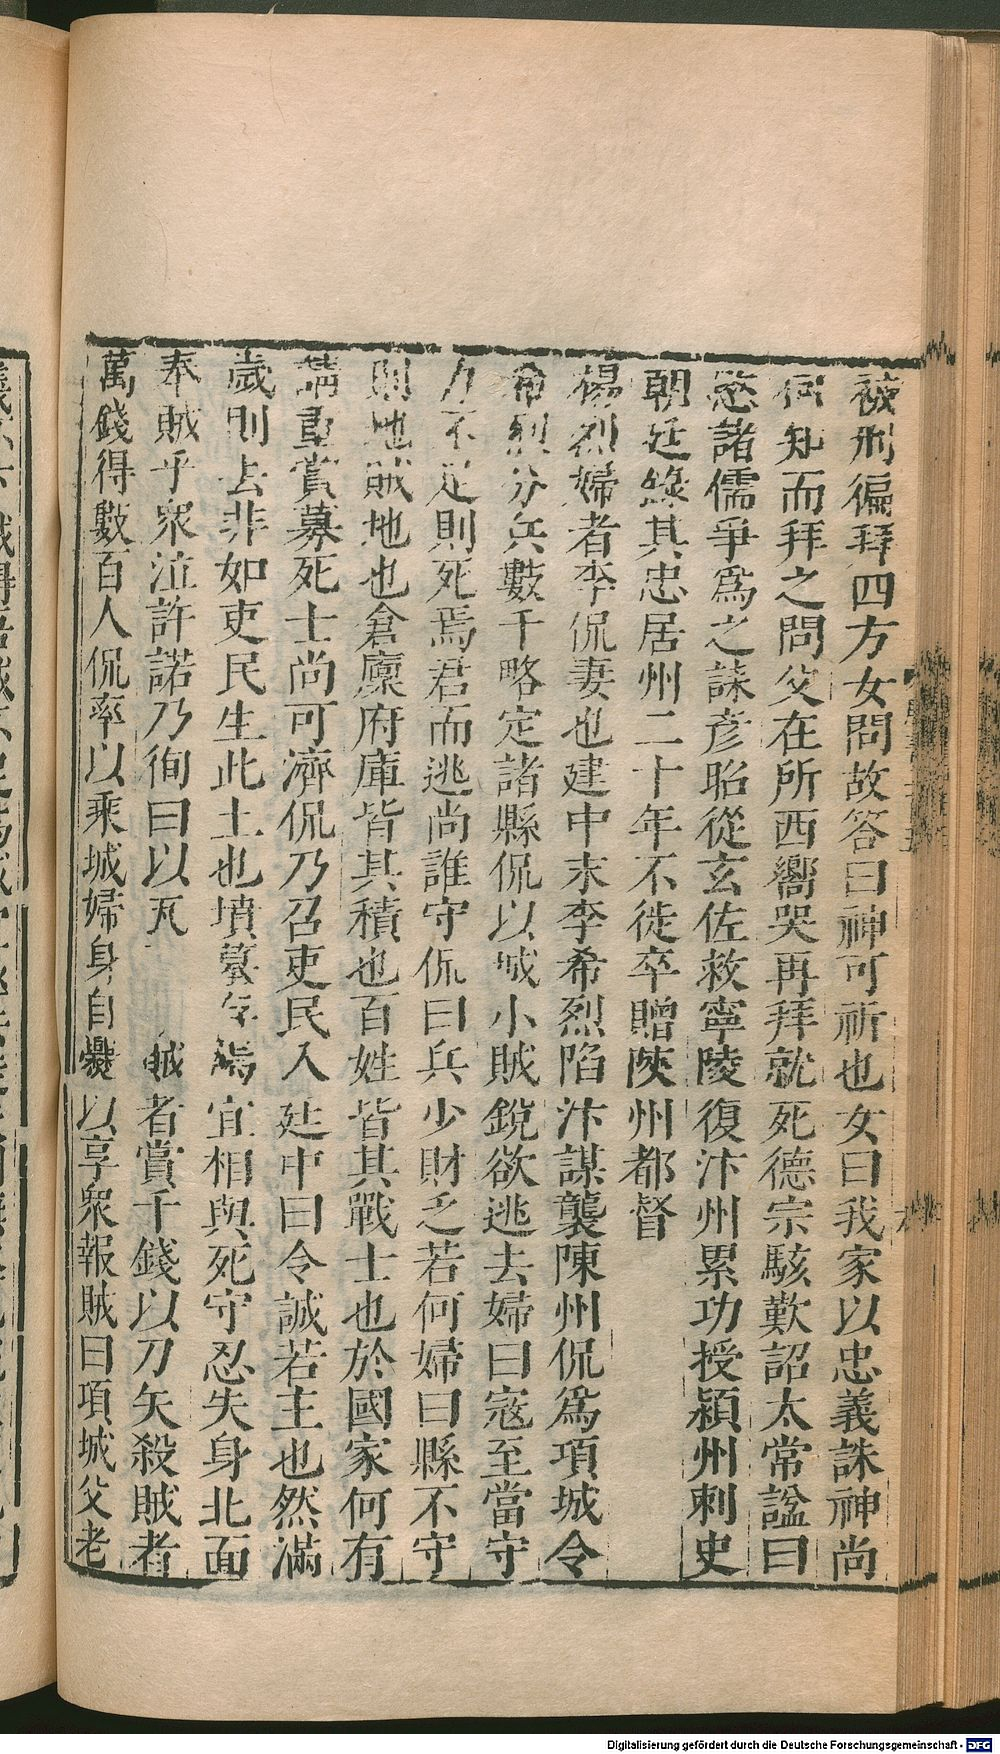 被刑徧拜四方女問故答曰神可祈也女曰我家以忠義誅神尚
何知而拜之問父在所西嚮哭再拜就死德宗駭歎詔太常諡曰
愍諸儒爭爲之誄彦昭從玄佐救寧陵復汴州累功授潁州刺史
朝廷錄其忠居州二十年不徙卒贈陝州都督
楊烈婦者李侃妻也建中末李希烈陷汴謀襲陳州侃爲項城令
希烈分兵數千略定諸縣侃以城小賊銳欲逃去婦曰寇至當守
力不足則死焉君而逃尚誰守侃曰兵少財乏若何婦曰縣不守
則地賊地也倉廩府庫皆其積也百姓皆其戰士也於國家何有
請重賞募死士尚可濟侃乃召吏民入廷中曰令誠若主也然滿
歲則去非如吏民生此土也墳墓存焉宜相與死守忍失身北面
奉賊乎衆泣許諾乃徇曰以瓦賊者賞千錢以刀矢殺賊者
萬錢得數百人侃率以乘城婦身自爨以享衆報賊曰項城父老
Digitalisierung gefördert durch die Deutsche Forschungsgemeinschaft - DFG